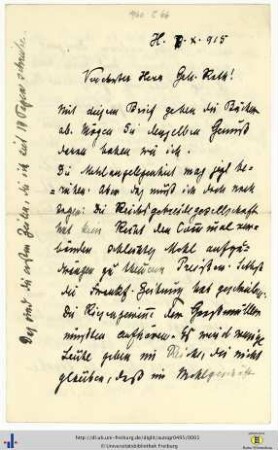 H. 8.X.915
Verehrter Herr Geh. Rath!
Mit diesem Brief gehen die Bücher
ab. Mögen Sie denselben Genuß
daran haben wie ich.
Die Mehlangelegenheit mag jetzt
aber das muß ich doch noch
sagen: Die Reichsgetreidegesellschaft
hat kein Recht den Communalver-
bänden schlechtes Mehl aufzu-
drängen zu theuren Preisen. Selbst
die Frankf. Zeitung hat geschrieben
die Riesengewinne der Großmüllen
müssten aufhören. Es wird wenige
Leute geben im Reiche, die nicht
glauben, daß im Mehlgeschäft
Das sind die ersten Zeilen, die ich seit 14 Tagen schreibe.
http://dl.ub.uni-freiburg.de/diglit/autogr0495/0003
© Universitätsbibliothek Freiburg